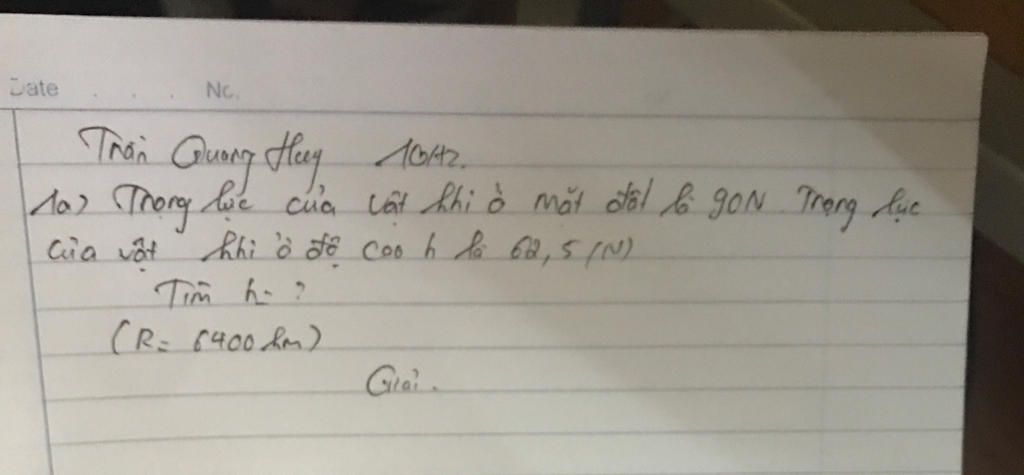 Date . . . No.
Trần Quang Huy 10H2.
1a) Trọng lực của vật khi ở mặt đất là 90N Trọng lực
của vật khi ở độ cao h là 62,5 (N)
Tìm h = ?
(R = 6400 km)
Giải.